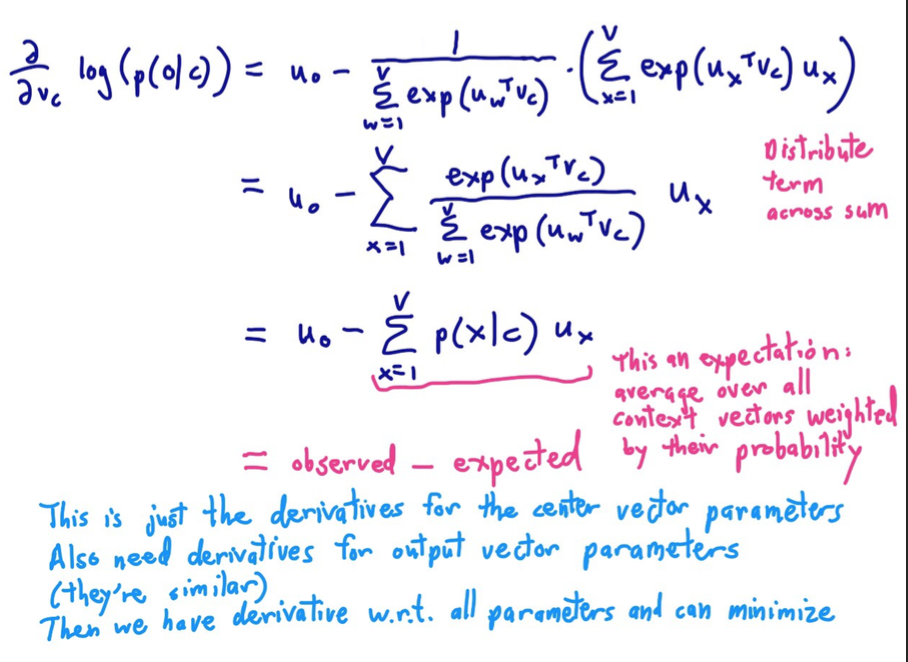 ∂/∂v_c log(p(o|c)) = u_o − 1/(Σ_{w=1}^{V} exp(u_w^T v_c)) · (Σ_{x=1}^{V} exp(u_x^T v_c) u_x)
= u_o − Σ_{x=1}^{V} exp(u_x^T v_c)/(Σ_{w=1}^{V} exp(u_w^T v_c)) u_x
Distribute
term
across sum
= u_o − Σ_{x=1}^{V} p(x|c) u_x
This an expectation:
average over all
context vectors weighted
by their probability
= observed − expected
This is just the derivatives for the center vector parameters
Also need derivatives for output vector parameters
(they're similar)
Then we have derivative w.r.t. all parameters and can minimize